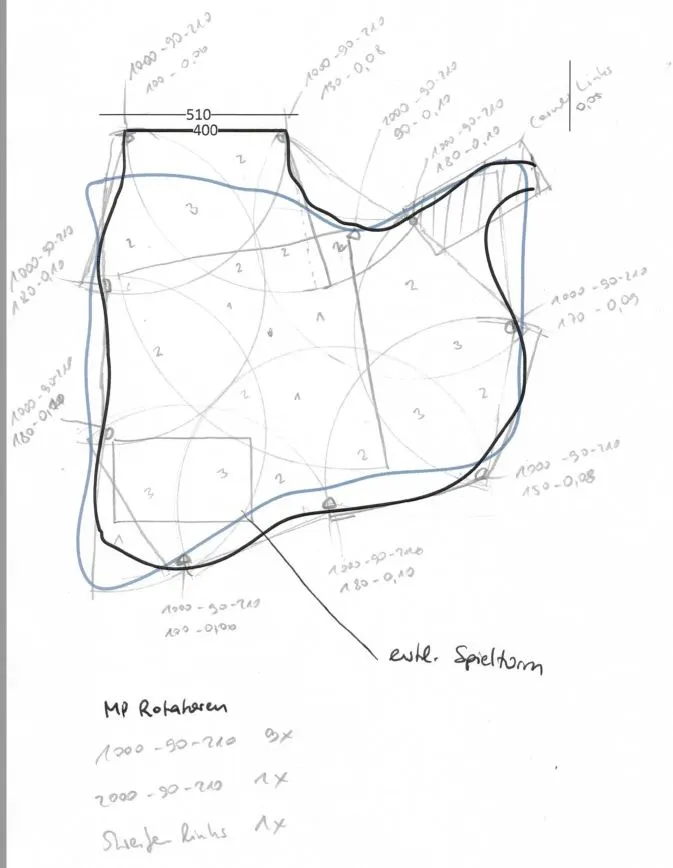 1000-90-210
1000-90-210
150-0,08
1000-90-210
90-0,10
1000-90-210
180-0,10
Corner Links
0,05
510
400
2
3
2
2
2
2
1
1
2
1000-90-210
180-0,10
1000-90-210
170-0,09
2
3
1000-90-210
2
1
3
2
3
3
2
2
3
1
1000-90-210
150-0,08
1000-90-210
180-0,10
1000-90-210
evtl. Spielturm
MP Rotatoren
1000-90-210 9x
2000-90-210 1x
Streifen Links 1x